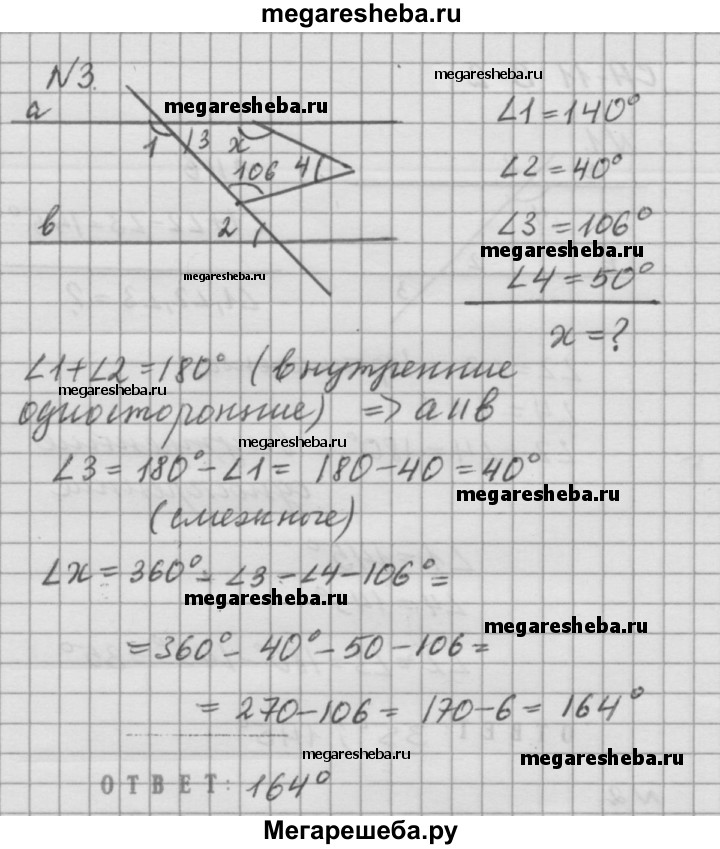 megaresheba.ru
N3.
megaresheba.ru
a
megaresheba.ru
∠1=140°
1 3 x
∠2=40°
106 4
в
2
∠3=106°
megaresheba.ru
megaresheba.ru
∠4=50°
x=?
∠1+∠2=180° (внутренние
megaresheba.ru
односторонние) => a||в
megaresheba.ru
∠3=180°-∠1= 180-40=40°
megaresheba.ru
(смежные)
∠x=360°-∠3-∠4-106°=
megaresheba.ru
megaresheba.ru
=360°-40°-50-106=
=270-106=170-6=164°
megaresheba.ru
megaresheba.ru
ОТВЕТ: 164°
Мегарешеба.ру